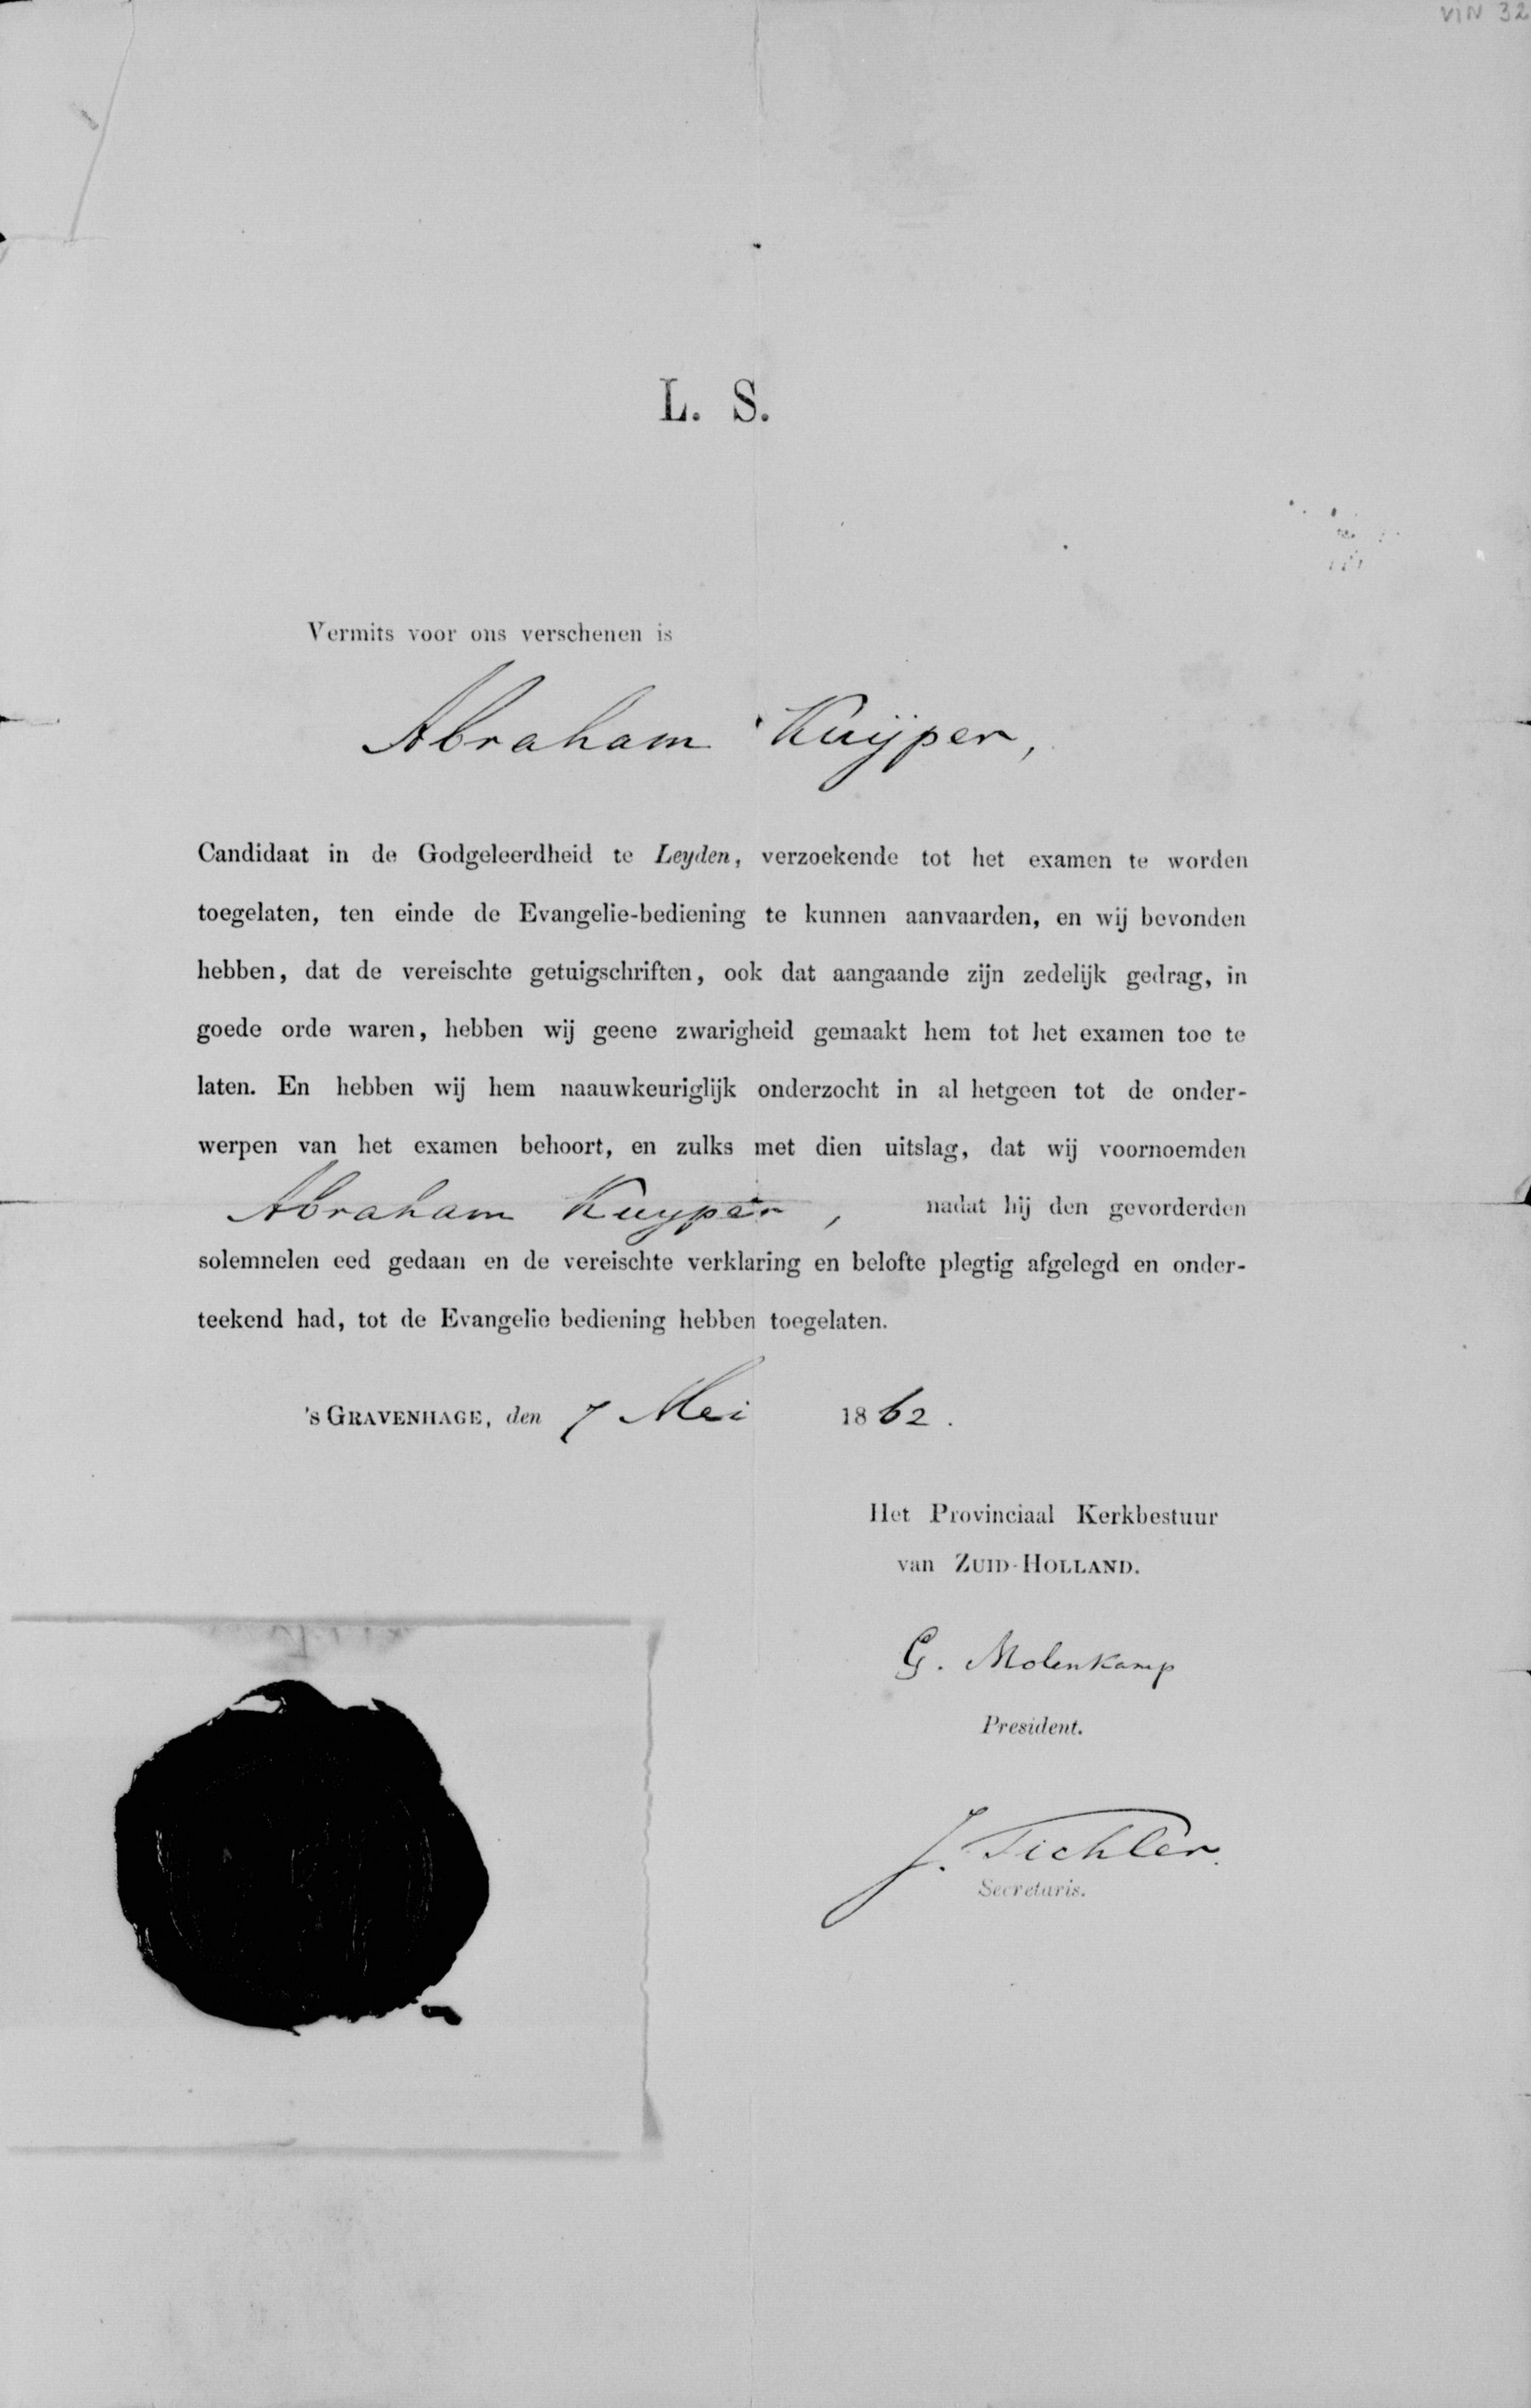 VIN 32
L. S.
Vermits voor ons verschenen is
Abraham Kuijper,
Candidaat in de Godgeleerdheid te Leyden, verzoekende tot het examen te worden
toegelaten, ten einde de Evangelie-bediening te kunnen aanvaarden, en wij bevonden
hebben, dat de vereischte getuigschriften, ook dat aangaande zijn zedelijk gedrag, in
goede orde waren, hebben wij geene zwarigheid gemaakt hem tot het examen toe te
laten. En hebben wij hem naauwkeuriglijk onderzocht in al hetgeen tot de onder-
werpen van het examen behoort, en zulks met dien uitslag, dat wij voornoemden
Abraham Kuyper, nadat hij den gevorderden
solemnelen eed gedaan en de vereischte verklaring en belofte plegtig afgelegd en onder-
teekend had, tot de Evangelie bediening hebben toegelaten.
's GRAVENHAGE, den 7 Mei 1862.
Het Provinciaal Kerkbestuur
van ZUID-HOLLAND.
G. Molenkamp
President.
J. Tichler.
Secretaris.